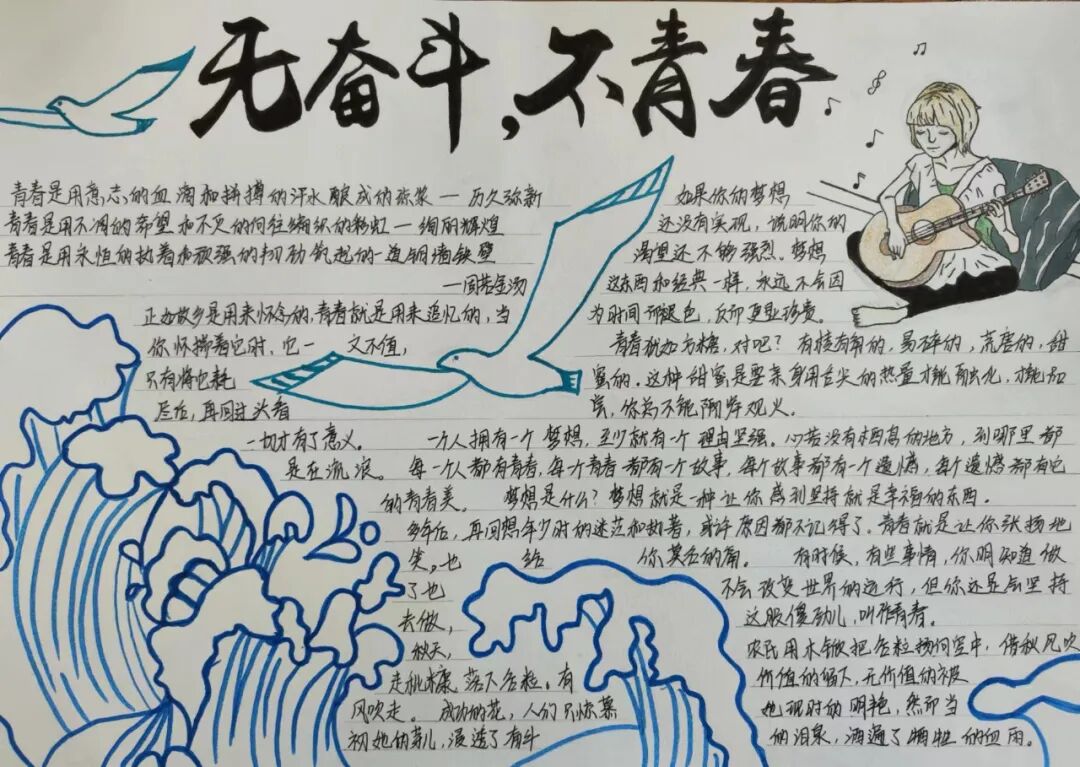 无奋斗,不青春
青春是用意志的血滴和拼搏的汗水酿成的琼浆—历久弥新
青春是用不凋的希望和不灭的向往编织的彩虹—绚丽辉煌
青春是用永恒的执着和顽强的韧劲筑起的一道铜墙铁壁
—固若金汤
正如故乡是用来怀念的,青春就是用来追忆的,当
你怀揣着它时,它一 文不值,
只有将它耗
尽后,再回过头看
一切才有了意义。
如果你的梦想
还没有实现,说明你的
渴望还不够强烈。梦想
这东西和经典一样,永远不会因
为时间而褪色,反而更显珍贵。
青春犹如方糖,对吧?有棱有角的,易碎的,荒唐的,甜
蜜的。这种甜蜜是要亲身用舌尖的热量才能融化,才能品
尝,你总不能隔岸观火。
一个人拥有一个梦想,至少就有一个理由坚强。心若没有栖息的地方,到哪里都
是在流浪。 每一个人都有青春,每一个青春都有一个故事,每个故事都有一个遗憾,每个遗憾都有它
的青春美。 梦想是什么?梦想就是一种让你感到坚持就是幸福的东西。
多年后,再回想年少时的迷茫和执着,或许原因都不记得了。青春就是让你张扬地
笑,也 给 你莫名的痛。 有时候,有些事情,你明知道做
了也 不会改变世界的运行,但你还是会坚持
去做, 这股傻劲儿,叫作青春。
秋天, 农民用木锨把谷粒扬向空中,借秋风吹
走秕糠,落下谷粒。有 价值的留下,无价值的被
风吹走。 成功的花,人们只惊慕 她现时的明艳,然而当
初她的芽儿,浸透了奋斗 的泪泉,洒遍了牺牲的血雨。